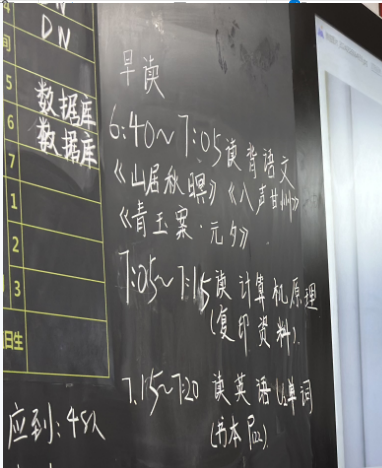 DN
5
6
7
1
2
3
日生
数据库
数据库
早读
6:40~7:05读背语文
《山居秋暝》《八声甘州》
《青玉案·元夕》.
7:05~7:15读计算机原理
(复印资料).
7.15~7:20 读英语U1单词
(书本 P22)
应到:48人